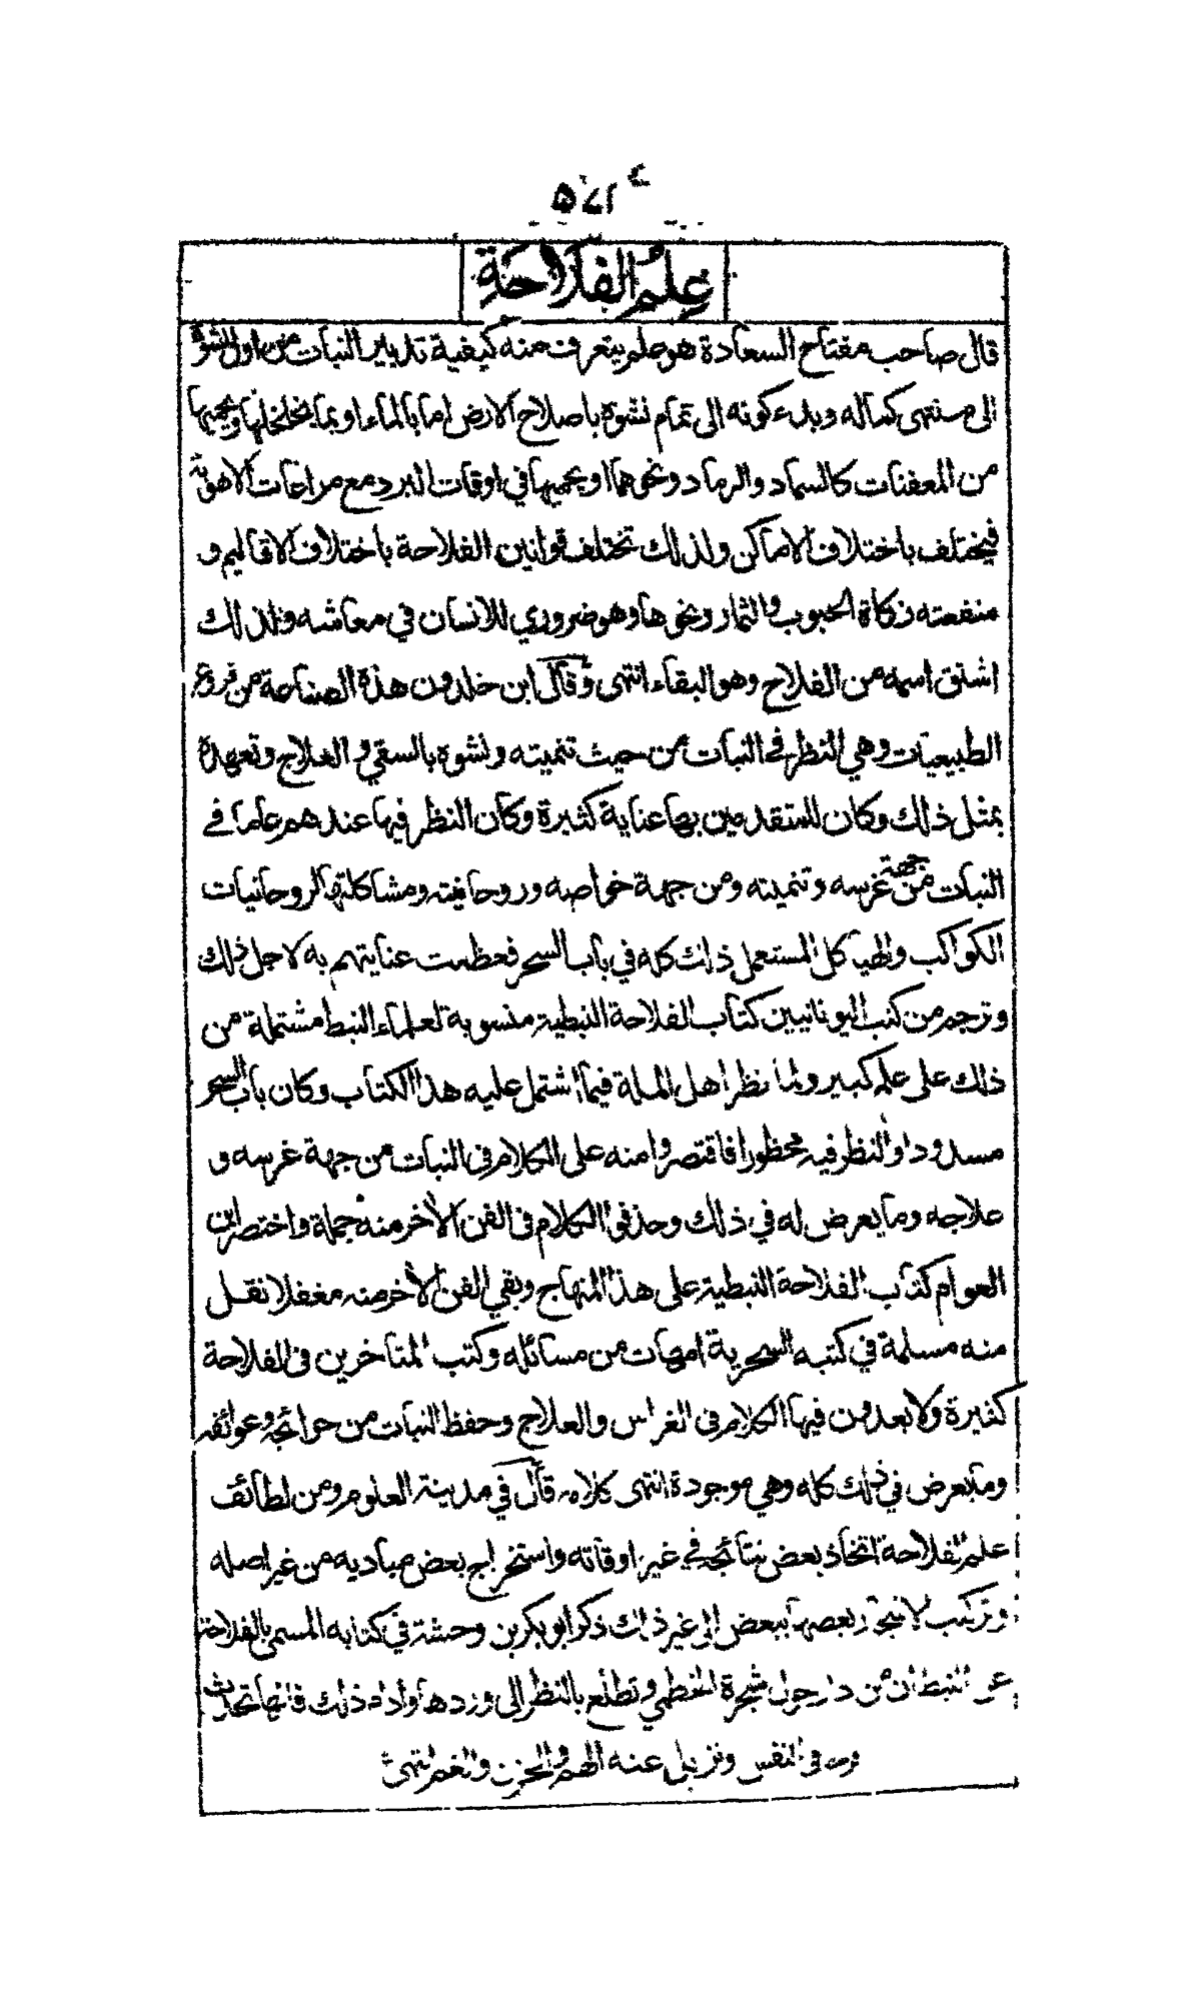 ٥٧١
علم الفلاحة
قال صاحب مفتاح السعادة هو علم يتعرف منه كيفية تدبير النبات من اول نشوه
الى منتهى كماله وبدء كونه الى تمام نشوه باصلاح الارض اما بالماء او بما يخلخلها ويحميها
من المعفنات كالسماد والرماد ونحوهما او يحميها في اوقات البرد مع مراعات الاهوية
فيختلف باختلاف الاماكن ولذلك تختلف قوانين الفلاحة باختلاف الاقاليم و
منفعته زكاة الحبوب والثمار ونحوها وهو ضروري للانسان في معاشه ولذلك
اشتق اسمه من الفلاح وهو البقاء انتهى وقال ابن خلدون هذه الصناعة من فروع
الطبيعيات وهي النظر في النبات من حيث تنميته ونشوه بالسقي والعلاج وتعهده
بمثل ذلك وكان للمتقدمين بها عناية كثيرة وكان النظر فيها عندهم عاما في
النبات من جهة غرسه وتنميته ومن جهة خواصه وروحانيته ومشاكلتها لروحانيات
الكواكب والهياكل المستعمل ذلك كله في باب السحر فعظمت عنايتهم به لاجل ذلك
وترجم من كتب اليونانيين كتاب الفلاحة النبطية منسوبة لعلماء النبط مشتملة من
ذلك على علم كبير ولما نظر اهل الملة فيما اشتمل عليه هذا الكتاب وكان باب السحر
مسدودا والنظر فيه محظورا فاقتصروا منه على الكلام في النبات من جهة غرسه و
علاجه وما يعرض له في ذلك وحذفوا الكلام في الفن الأخر منه جملة واختصر ابن
العوام كتاب الفلاحة النبطية على هذا المنهاج وبقي الفن الأخر منه مغفلا نقل
منه مسلمة في كتبه السحرية امهات من مسائله وكتب المتاخرين في الفلاحة
كثيرة ولا يعدون فيها الكلام في الغراس والعلاج وحفظ النبات من حوائجه وعوائقه
وما يعرض في ذلك كله وهي موجودة انتهى كلامه قال في مدينة العلوم ومن لطائف
علم الفلاحة اتخاذ بعض نتائجه في غير اوقاته واستخراج بعض مباديه من غير اصله
وتركيب الاشجار بعضها ببعض الى غير ذلك ذكر ابو بكر بن وحشة في كتابه المسمى بالفلاحة
عن النبط ان من دار حول شجرة الخطمي وتطلع بالنظر الى وردها وادام ذلك فانها تحدث
فرحا في النفس وتزيل عنه الهم والحزن والغم انتهى